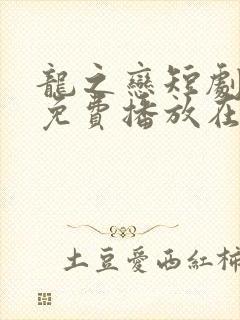 龍之戀短劇
免費播放在
土豆愛西紅柿